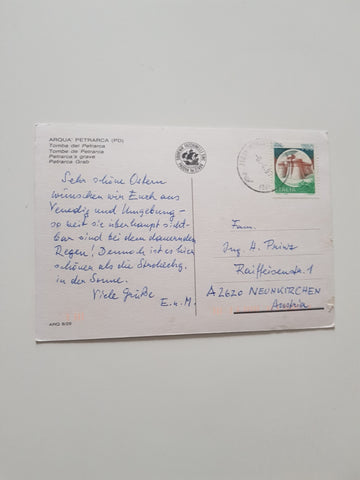 ARQUA' PETRARCA (PD)
Tomba del Petrarca
Tombe de Petrarca
Petrarca's grave
Petrarca Grab
Sehr schöne Ostern
wünschen wir Euch aus
Venedig und Umgebung –
so weit sie überhaupt sicht-
bar sind bei dem dauernden
Regen! Dennoch ist es hier
schöner als die
in der Sonne.
Viele Grüße
E. u. M.
ARQ 6/29
ITALIA
Fam.
Ing. H. Prinz
Raiffeisenstr. 1
A2620 NEUNKIRCHEN
Austria